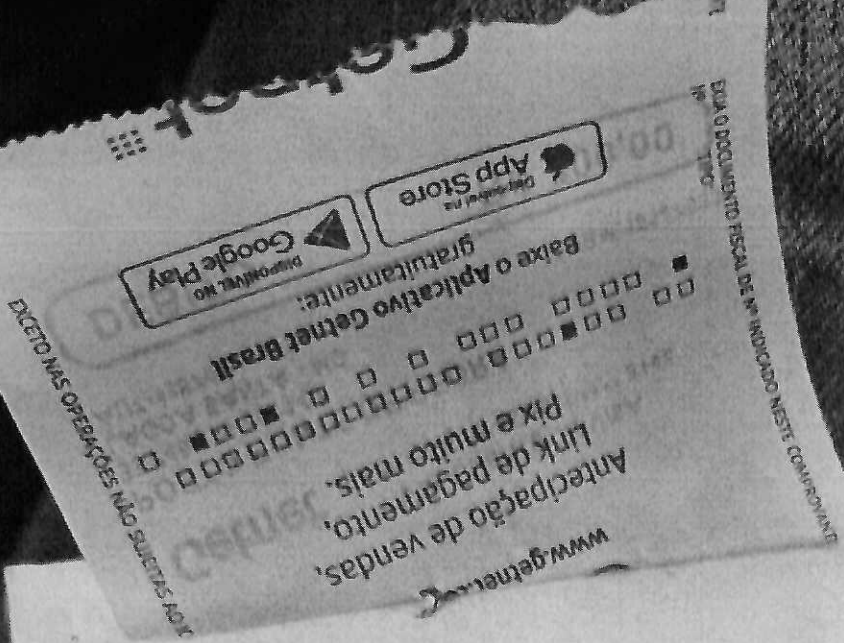 Antecipação de vendas,
Link de pagamento,
Pix e muito mais.
Baixe o Aplicativo Getnet Brasil
gratuitamente:
Disponível na
App Store
DISPONÍVEL NO
Google Play
Getnet
EXIJA O DOCUMENTO FISCAL DE Nº INDICADO NESTE COMPROVANTE
Nº TIPO
EXCETO NAS OPERAÇÕES NÃO SUJEITAS AO